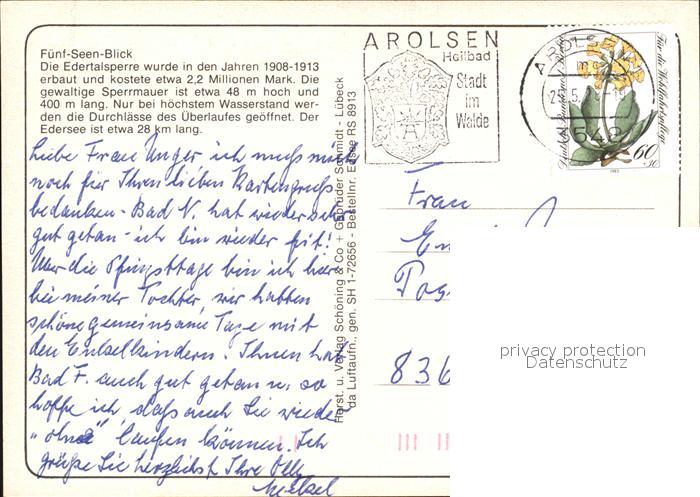 Fünf-Seen-Blick
Die Edertalsperre wurde in den Jahren 1908-1913
erbaut und kostete etwa 2,2 Millionen Mark. Die
gewaltige Sperrmauer ist etwa 48 m hoch und
400 m lang. Nur bei höchstem Wasserstand wer-
den die Durchlässe des Überlaufes geöffnet. Der
Edersee ist etwa 28 km lang.
Liebe Frau Unger ich muß mich
noch für Ihren lieben Kartengruß
bedanken - Bad N. hat wieder sehr
gut getan - ich bin wieder fit!
Über die Pfingsttage bin ich hier
bei meiner Tochter, wir hatten
schöne gemeinsame Tage mit
den Enkelkindern. Ihnen hat
Bad F. auch gut getan u. so
hoffe ich, daß auch Sie wieder
"ohne" laufen können. Ich
grüße Sie herzlichst Ihre
Horst. u. Verlag Schöning & Co + Gebrüder Schmidt - Lübeck
da Luftaufn., gen. SH 1-72656 - Bestellnr. Edsee RS 8913
AROLSEN
Heilbad
Stadt
im
Walde
AROLSEN
25.5.
3548
Für die Wohlfahrtspflege
Deutsche Bundespost
60
+30
Frau
836
privacy protection
Datenschutz